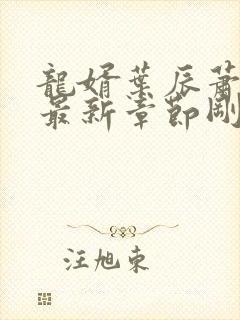 龍婿葉辰蕭
最新章節剛
汪旭東